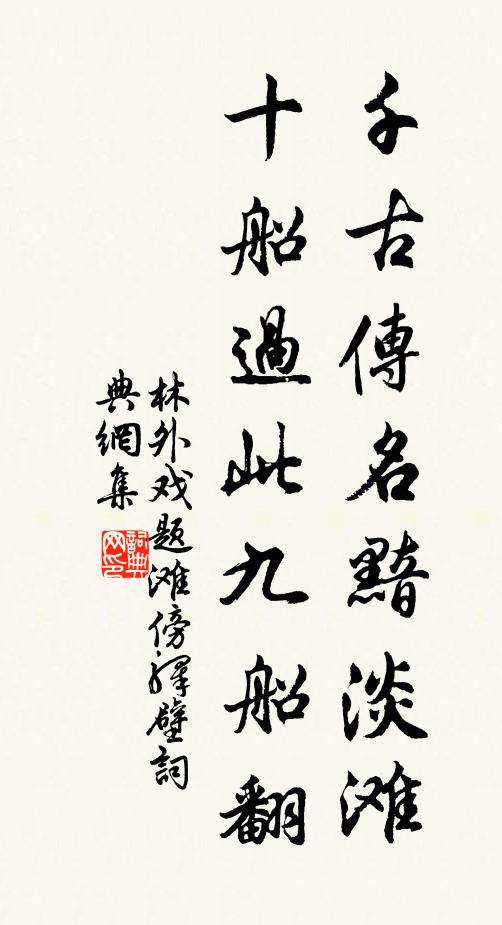 千古傳名黯淡滩
十船過此九船翻
林外戏题滩傍驛壁詞
典網集
詞典网印